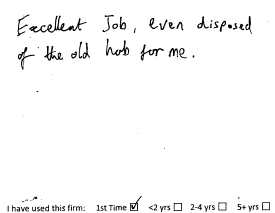 Excellent Job, even disposed
of the old hob for me.
I have used this firm: 1st Time ☑ <2 yrs ☐ 2-4 yrs ☐ 5+ yrs ☐